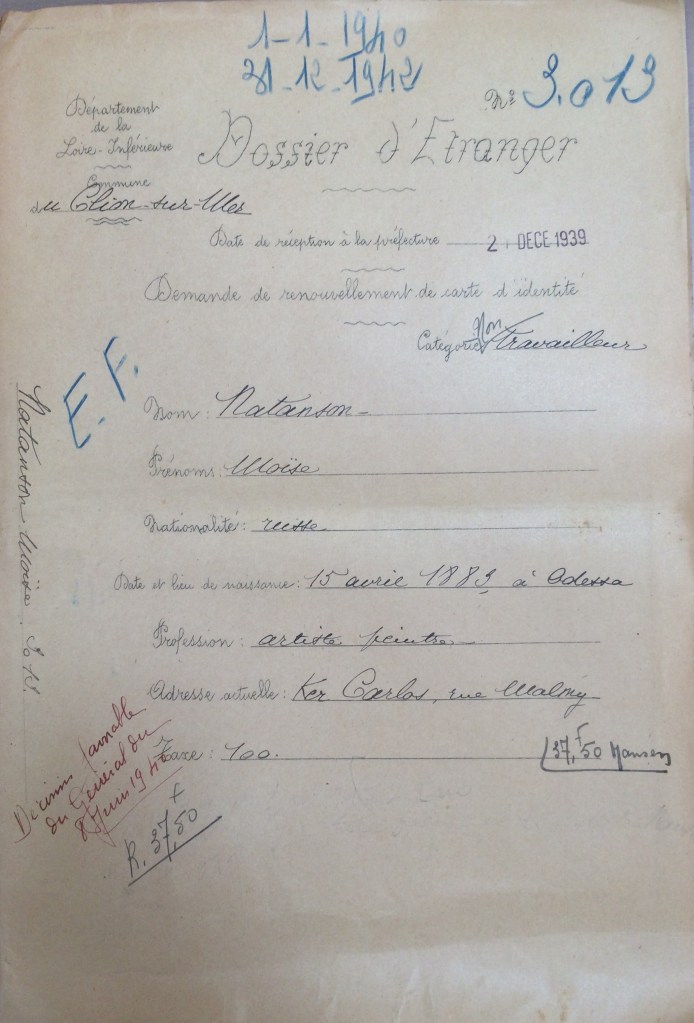 1-1-1940
31-12-1942
N° 3.013
Département
de la
Loire-Inférieure
Commune
du Clion-sur-Mer
Dossier d'Etranger
Date de réception à la préfecture 2 DECE 1939
Demande de renouvellement de carte d'identité
Non
Catégorie Travailleur
E.F.
Nom: Natanson
Prénoms: Moïse
Nationalité: russe
Date et lieu de naissance: 15 avril 1883 à Odessa
Profession: artiste peintre
Adresse actuelle: Ker Carlos, rue Malmy
Taxe: 100.
37,F50 Nansen
Natanson Moïse. 3013.
favorable
du Général du
8 Juin 1940
R. 37,F50